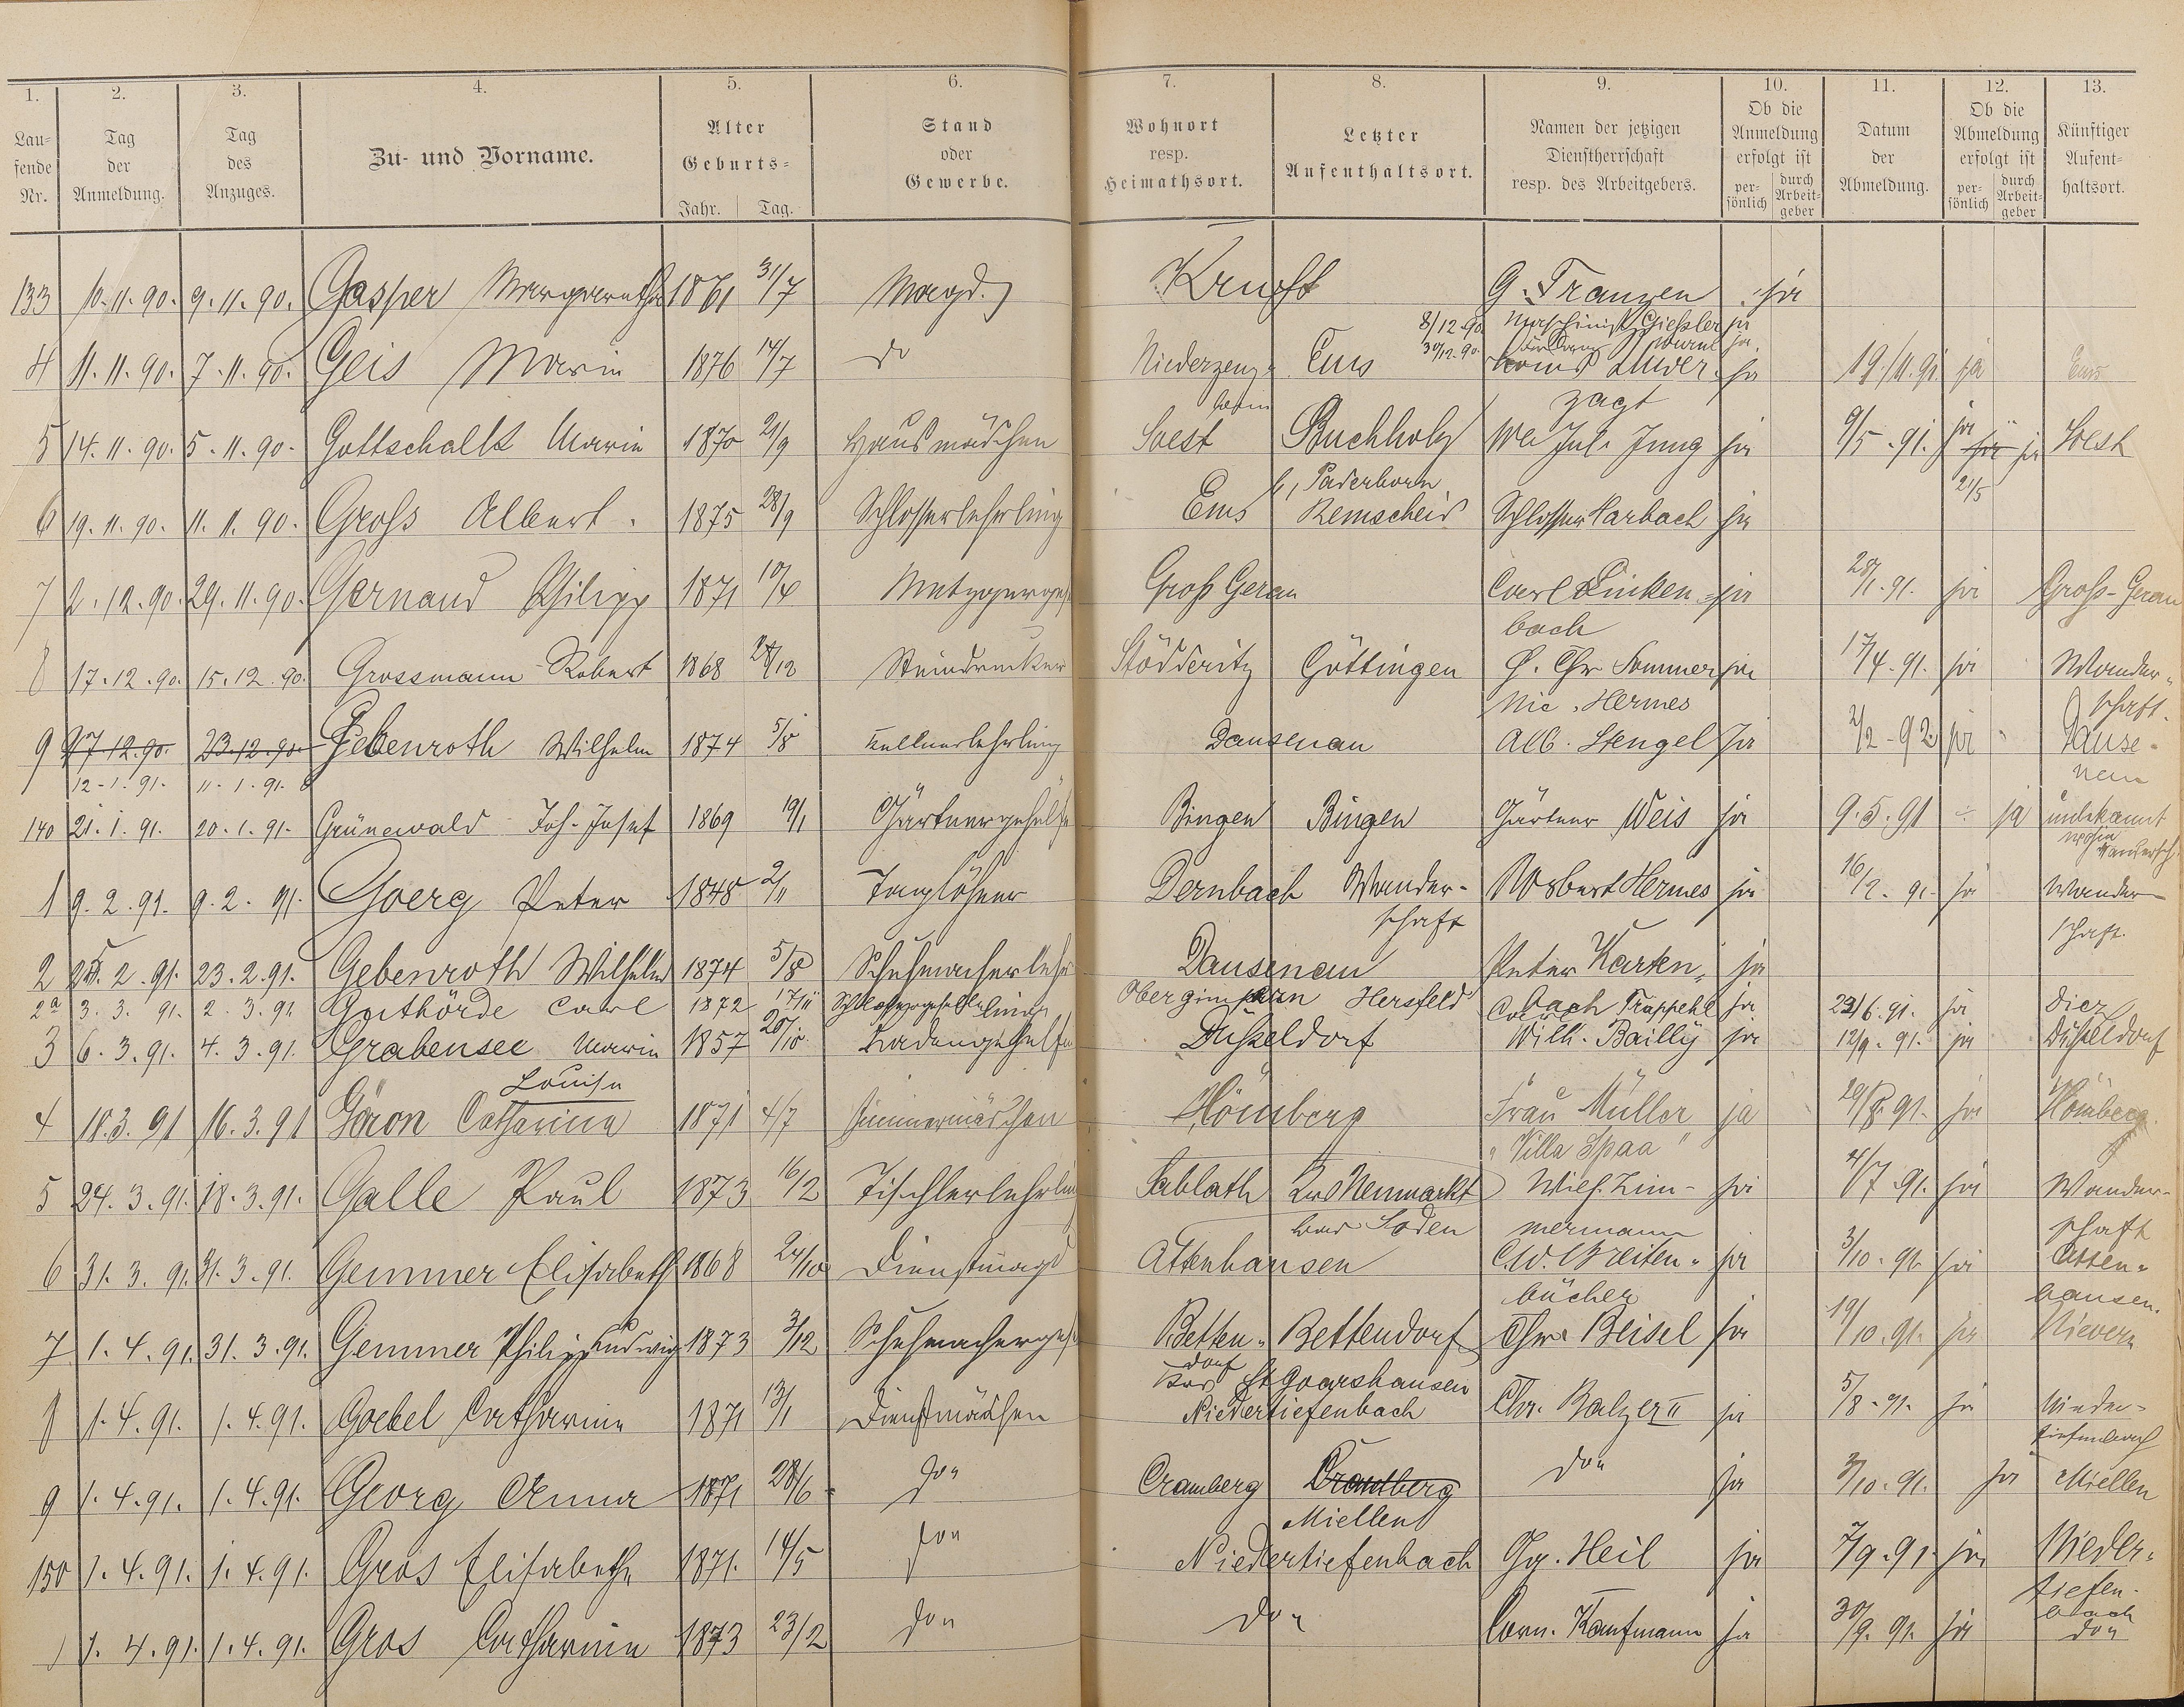 1. 2. 3. 4. 5. 6. 7. 8. 9. 10. 11. 12. 13.
Lau-
fende
Nr.
Tag
der
Anmeldung.
Tag
des
Anzuges.
Zu- und Vorname.
Alter
Geburts-
Jahr. Tag.
Stand
oder
Gewerbe.
Wohnort
resp.
Heimathsort.
Letzter
Aufenthaltsort.
Namen der jetzigen
Dienstherrschaft
resp. des Arbeitgebers.
Ob die
Anmeldung
erfolgt ist
per-
sönlich
durch
Arbeit-
geber
Datum
der
Abmeldung.
Ob die
Abmeldung
erfolgt ist
per-
sönlich
durch
Arbeit-
geber
Künftiger
Aufent-
haltsort.
133 10.11.90. 9.11.90. Gasper Margaretha 1861 31/7 Magd. Kruft G. Franzen ja
8/12.90 Maschinist Giessler ja
30/12.90. ja.
4 11.11.90. 7.11.90. Geis Maria 1876 14/7 do Niederzeuz- Ems Louis Luver- ja 19./11.91. ja Ems
heim zagt
5 14.11.90. 5.11.90. Gottschalk Maria 1870 21/9 Hausmädchen Soest Buchholz We Jul. Jung ja 6/5.91. ja ja ja Soest
b, Paderborn 21/5
6 19.11.90. 11.11.90. Groß Albert. 1875 28/9 Schlosserlehrling Ems Remscheid Schlosser Harbach ja
7 2.12.90. 29.11.90. Gernand Philipp 1871 10/4 Metzgerges Groß Gerau Carl Linken- ja 28/1.91. ja Groß-Gerau
bach
8 17.12.90. 15.12.90. Grossmann Robert 1868 24/12 Steindrucker Stödteritz Göttingen H. Chr Sommer ja 17/4.91. ja Wander-
Nic. Hermes schaft.
9 27.12.90. 23.12.90. Gebenroth Wilhelm 1874 5/8 Kellnerlehrling Dausenau Alb. Stengel ja 2/2-92 ja Dause-
12-1.91. 11.1.91. nau
140 21.1.91. 20.1.91. Grünewald Joh. Josef 1869 19/1 Gärtnergehülfe Bingen Bingen Gärtner Weis ja 9.5.91 ja unbekannt
wohin
1 9.2.91. 9.2.91. Goerg Peter 1848 2/11 Taglöhner Dernbach Wander- Norbert Hermes ja 16/2.91. ja Wander-
schaft schaft.
2 25.2.91. 23.2.91. Gebenroth Wilhelm 1874 5/8 Schuhmacherlehr Dausenau Peter Karten- ja
bach
2a 3.3.91. 2.3.91. Guthörde Carl 1872 17/11 Schlossergeselle Hersfeld Carl Trappehl ja. 23/6.91. ja Diez
ling
3 6.3.91. 4.3.91. Grabensee Maria 1857 20/10. Ladengehülfe Düsseldorf Wilh. Bailly ja 12/9.91. ja Düsseldorf
Louise
4 18.3.91 16.3.91 Göron Catharina 1871 4/7 Zimmermädchen Hömberg Frau Müller ja 29/8.91. ja Hömberg
"Villa Spaa"
5 24.3.91. 18.3.91. Galle Paul 1873 16/2 Tischlerlehrling Sablath Krs Neumarkt Wilh. Zim- ja 4/7.91. ja Wander-
Bad Soden mermann schaft
6 31.3.91. 31.3.91. Gemmer Elisabeth 1868 24/10 Dienstmagd Attenhausen C.W. Breiten- ja 3/10.91. ja Atten-
bücher hausen.
7 1.4.91. 31.3.91. Gemmer Philipp Ludwig 1873 3/12 Schuhmacherges Betten- Bettendorf Chr. Beisel ja 19/10.91. ja Nievern
dorf
Krs St Goarshausen
8 1.4.91. 1.4.91. Goebel Catharine 1871 13/1 Dienstmädchen Niedertiefenbach Chr. Balzer II ja 5/8.91. ja Nieder-
tiefenbach
9 1.4.91. 1.4.91. Georg Anna 1871 28/6 do Cramberg Cramberg do ja 3/10.91. ja Miellen
Miellen
150 1.4.91. 1.4.91. Gros Elisabeth 1871. 14/5 do Niedertiefenbach Gg. Heil ja 7/9.91. ja Nieder-
tiefen-
bach
1 1.4.91. 1.4.91. Gros Catharina 1873 23/2 do do Corn. Kaufmann ja 30/9.91. ja do